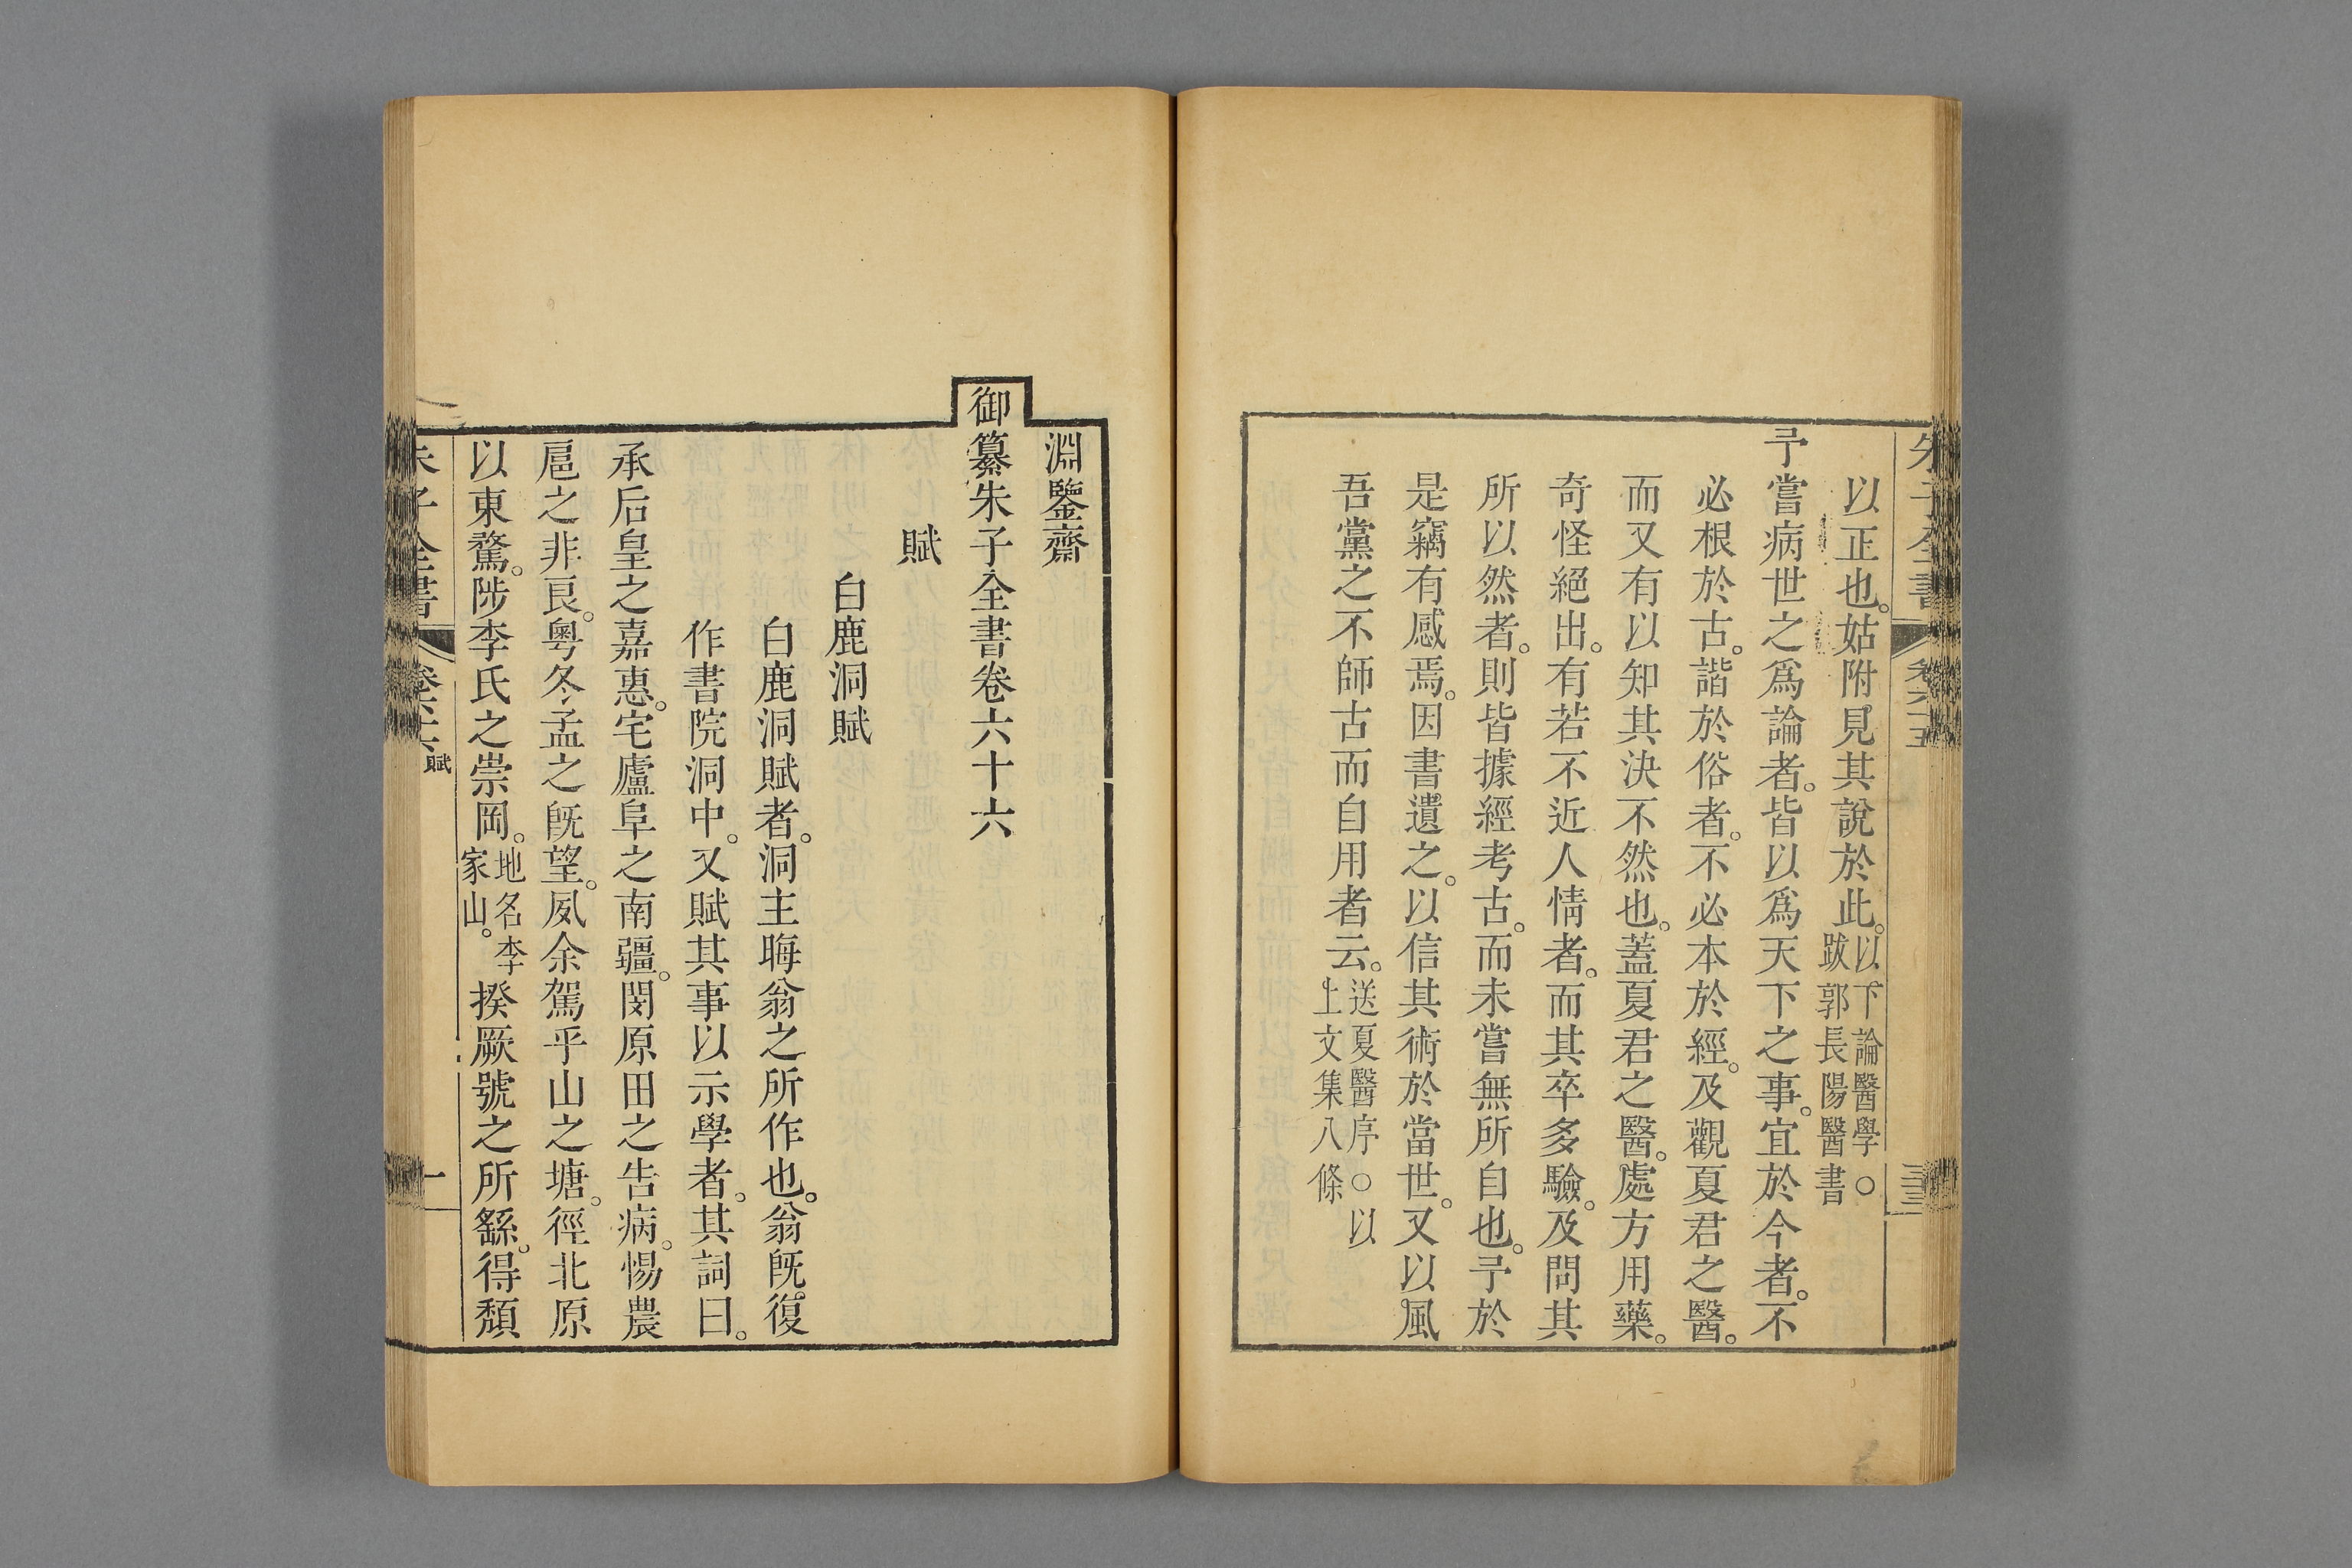 朱子全書 卷六十五 三三
以正也。姑附見其說於此。以下論醫學○跋郭長陽醫書
予嘗病世之爲論者。皆以爲天下之事。宜於今者。不
必根於古。諧於俗者。不必本於經。及觀夏君之醫。
而又有以知其決不然也。蓋夏君之醫。處方用藥。
奇怪絕出。有若不近人情者。而其卒多驗。及問其
所以然者。則皆據經考古。而未嘗無所自也。予於
是竊有感焉。因書遺之。以信其術於當世。又以風
吾黨之不師古而自用者云。送夏醫序○以上文集八條
淵鑒齋
御纂朱子全書卷六十六
賦
白鹿洞賦
白鹿洞賦者。洞主晦翁之所作也。翁旣復
作書院洞中。又賦其事以示學者。其詞曰。
承后皇之嘉惠。宅廬阜之南疆。閔原田之告病。惕農
扈之非良。粤冬孟之旣望。夙余駕乎山之塘。徑北原
以東騖。陟李氏之崇岡。地名李家山。揆厥號之所繇。得頹
朱子全書 卷六十六 賦 一